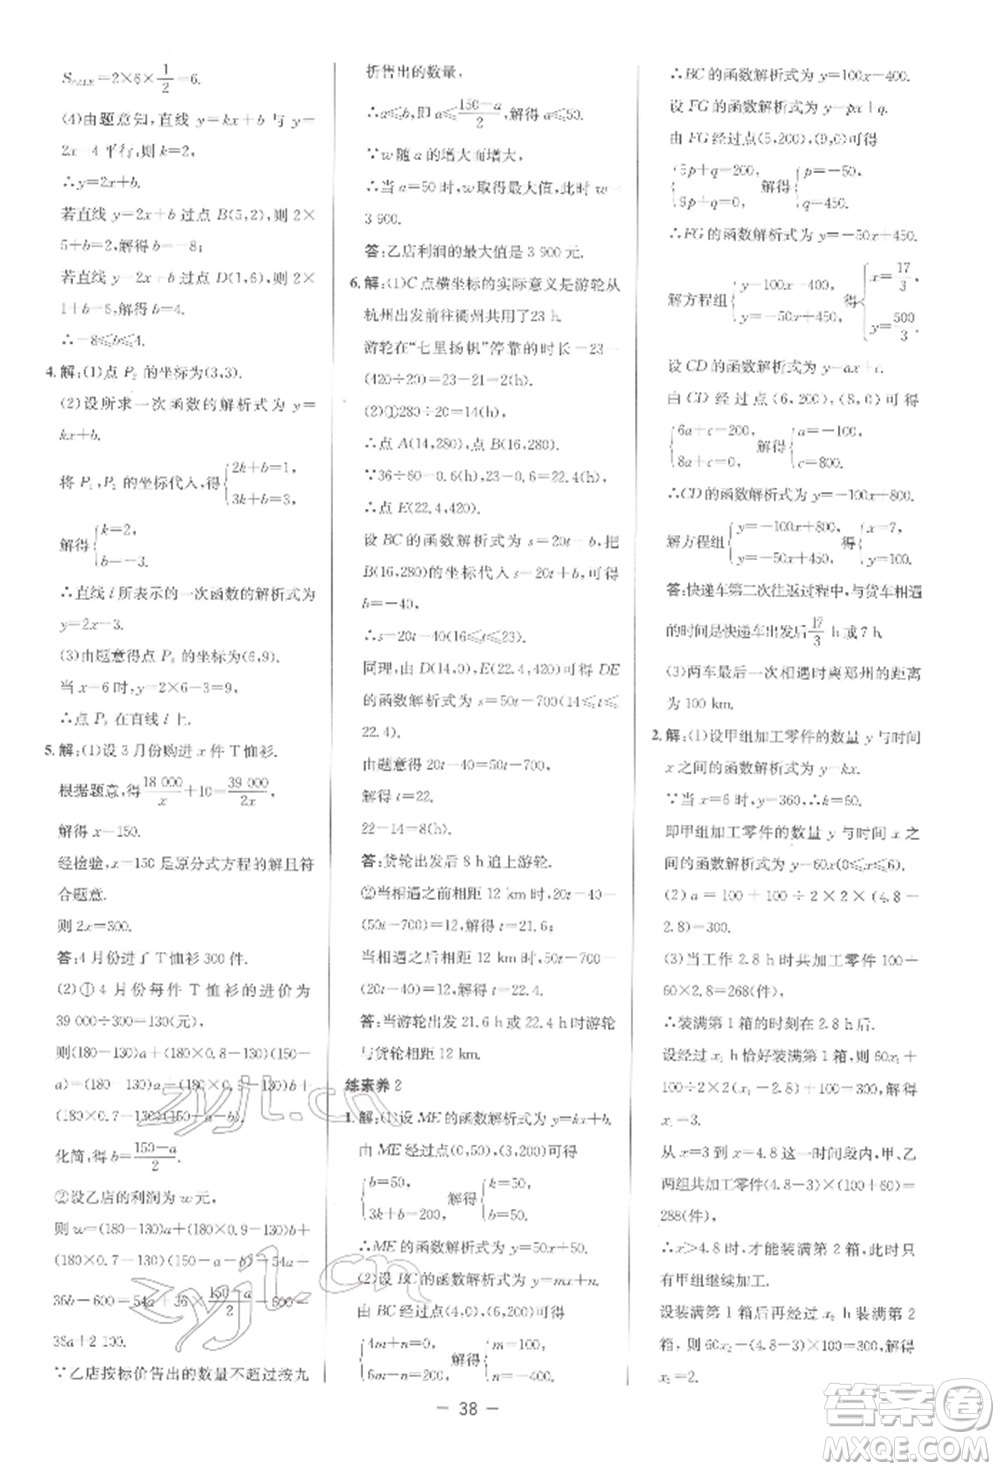 Smax=2×6×1/2=6.
(4)由题意知,直线 y=kx+b 与 y=
2x-4 平行,则 k=2.
∴y=2x+b.
若直线 y=2x+b 过点 B(5,2),则 2×
5+b=2,解得 b=-8;
若直线 y=2x+b 过点 D(1,6),则 2×
1+b=6,解得 b=4.
∴-8≤b≤4.
4.解:(1)点 P₂ 的坐标为(3,3).
(2)设所求一次函数的解析式为 y=
kx+b.
将 P₁,P₂ 的坐标代入,得{2k+b=1, 3k+b=3.
解得{k=2, b=-3.
∴直线 l 所表示的一次函数的解析式为
y=2x-3.
(3)由题意得点 P₃ 的坐标为(6,9).
当 x=6 时,y=2×6-3=9;
∴点 P₃ 在直线 l 上.
5.解:(1)设 3 月份购进 x 件 T 恤衫.
根据题意,得18 000/x+10=39 000/2x.
解得 x=150.
经检验,x=150 是原分式方程的解且符
合题意.
则 2x=300.
答:4 月份进了 T 恤衫 300 件.
(2)①4 月份每件 T 恤衫的进价为
39 000÷300=130(元),
则(180-130)a+(180×0.8-130)(150
-a)=(180-130)a+(180×0.9-130)b
+(180×0.7-130)(150-a-b).
化简,得 b=(150-a)/2.
②设乙店的利润为 w 元,
则 w=(180-130)a+(180×0.9-130)b
+(180×0.7-130)(150-a-b)=54a+
36b-600=54a+36×(150-a)/2-600=
36a+2 100.
∵乙店按标价售出的数量不超过按九
折售出的数量,
∴a≤b,即 a≤(150-a)/2,解得 a≤50.
∵w 随 a 的增大而增大,
∴当 a=50 时,w 取得最大值,此时 w=
3 900.
答:乙店利润的最大值是 3 900 元.
6.解:(1)C 点横坐标的实际意义是游轮从
杭州出发前往衢州共用了 23 h.
游轮在“七里扬帆”停靠的时长=23-
(420÷20)=23-21=2(h).
(2)①280÷20=14(h),
∴点 A(14,280),点 B(16,280).
∵36÷60=0.6(h),23-0.6=22.4(h),
∴点 E(22.4,420).
设 BC 的函数解析式为 s=20t+b,把
B(16,280)的坐标代入 s=20t+b,解得
b=-40,
∴s=20t-40(16≤t≤23).
同理,由 D(14,0),E(22.4,420)可得 DE
的函数解析式为 s=50t-700(14≤t≤
22.4).
由题意得 20t-40=50t-700,
解得 t=22.
22-14=8(h).
答:货轮出发后 8 h 追上游轮.
②当相遇之前相距 12 km 时,20t-40-
(50t-700)=12,解得 t=21.6;
当相遇之后相距 12 km 时,50t-700-
(20t-40)=12,解得 t=22.4.
答:当游轮出发 21.6 h 或 22.4 h 时游轮
与货轮相距 12 km.
练素养 2
1.解:(1)设 ME 的函数解析式为 y=kx+b.
由 ME 经过点(0,50),(3,200)可得
{b=50, 3k+b=200, 解得{k=50, b=50.
∴ME 的函数解析式为 y=50x+50.
(2)设 BC 的函数解析式为 y=mx+n.
由 BC 经过点(4,0),(6,200)可得
{4m+n=0, 6m+n=200, 解得{m=100, n=-400.
∴BC 的函数解析式为 y=100x-400.
设 FG 的函数解析式为 y=px+q.
由 FG 经过点(5,200),(9,0)可得
{5p+q=200, 9p+q=0, 解得{p=-50, q=450.
∴FG 的函数解析式为 y=-50x+450.
解方程组{y=100x-400, y=-50x+450, 得{x=17/3, y=500/3.
设 CD 的函数解析式为 y=ax+c.
由 CD 经过点(6,200),(8,0)可得
{6a+c=200, 8a+c=0, 解得{a=-100, c=800.
∴CD 的函数解析式为 y=-100x+800.
解方程组{y=-100x+800, y=-50x+450, 得{x=7, y=100.
答:快递车第二次往返过程中,与货车相遇
的时间是快递车出发后17/3 h 或 7 h.
(3)两车最后一次相遇时离郑州的距离
为 100 km.
2.解:(1)设甲组加工零件的数量 y 与时间
x 之间的函数解析式为 y=kx.
∵当 x=6 时,y=360,∴k=60.
即甲组加工零件的数量 y 与时间 x 之
间的函数解析式为 y=60x(0≤x≤6).
(2)a=100+100÷2×2×(4.8-
2.8)=300.
(3)当工作 2.8 h 时共加工零件 100+
60×2.8=268(件),
∴装满第 1 箱的时刻在 2.8 h 后.
设经过 x₁ h 恰好装满第 1 箱,则 60x₁+
100÷2×2(x₁-2.8)+100=300,解得
x₁=3.
从 x=3 到 x=4.8 这一时间段内,甲、乙
两组共加工零件(4.8-3)×(100+60)=
288(件),
∴x>4.8 时,才能装满第 2 箱,此时只
有甲组继续加工.
设装满第 1 箱后再经过 x₂ h 装满第 2
箱,则 60x₂+(4.8-3)×100=300,解得
x₂=2.
— 38 —
zyjl.cn
zyjl.cn
答案圈
MXQE.COM